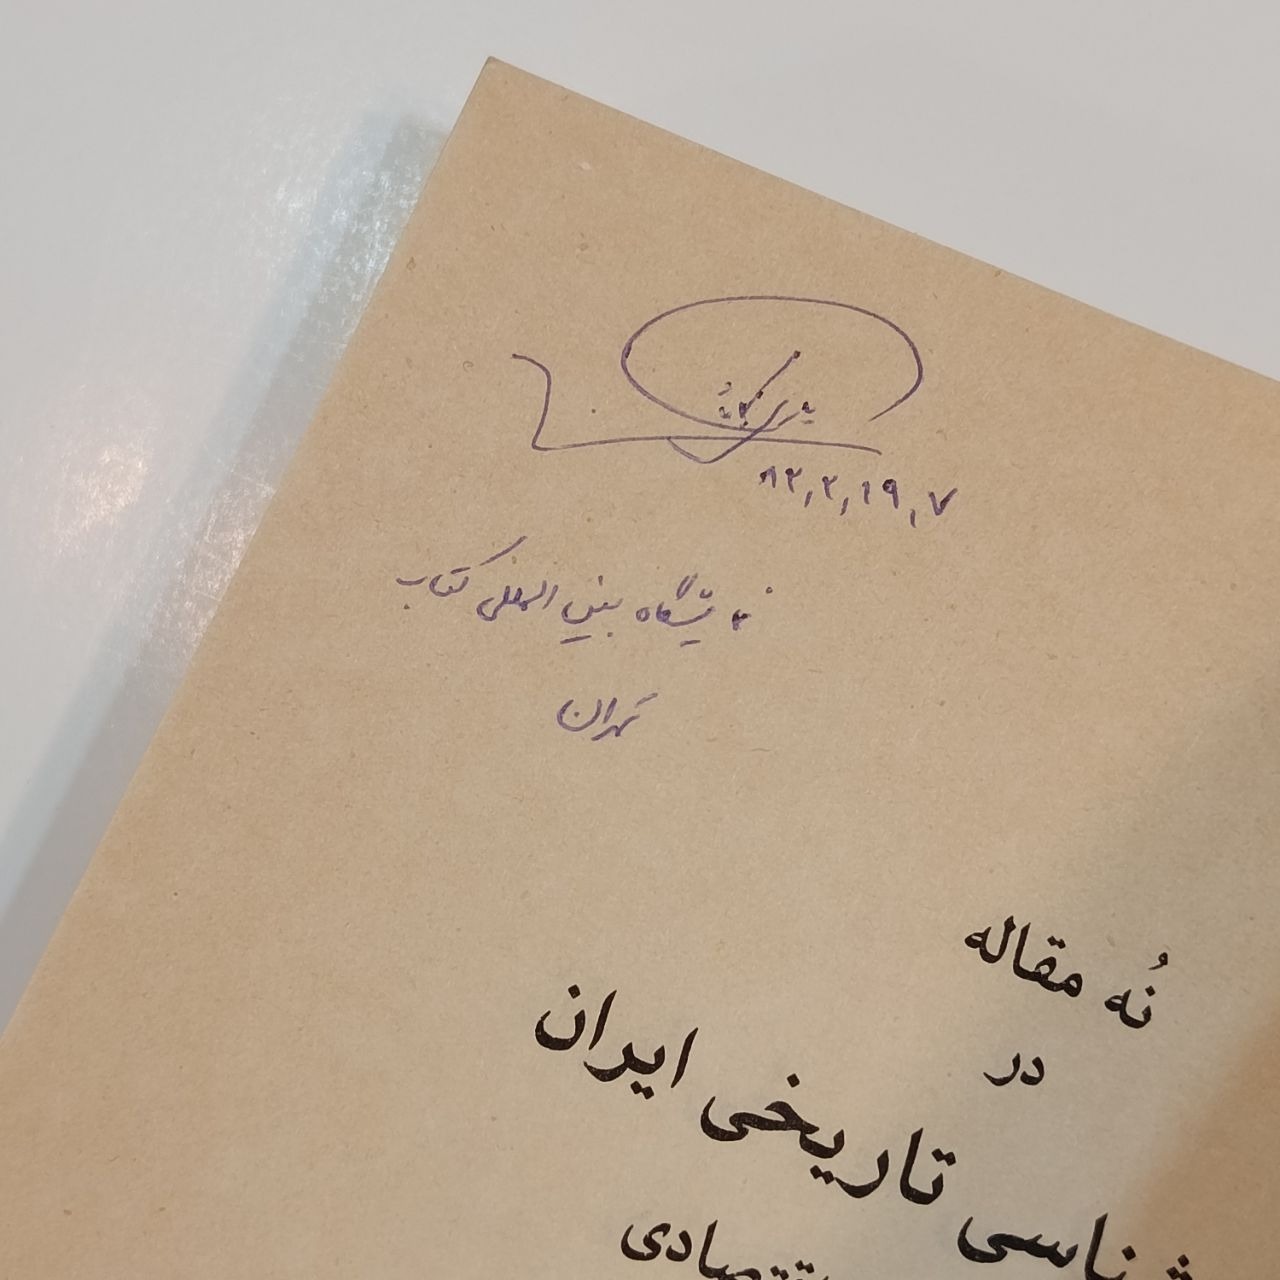 ۸۲,۲,۱۹,۷
نمایشگاه بین المللی کتاب
تهران
نُه مقاله
در
شناسی تاریخی ایران
قتصادی